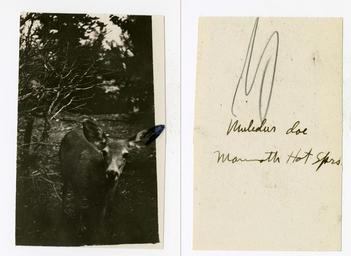 Muledeer doe
Mammoth Hot Sprs